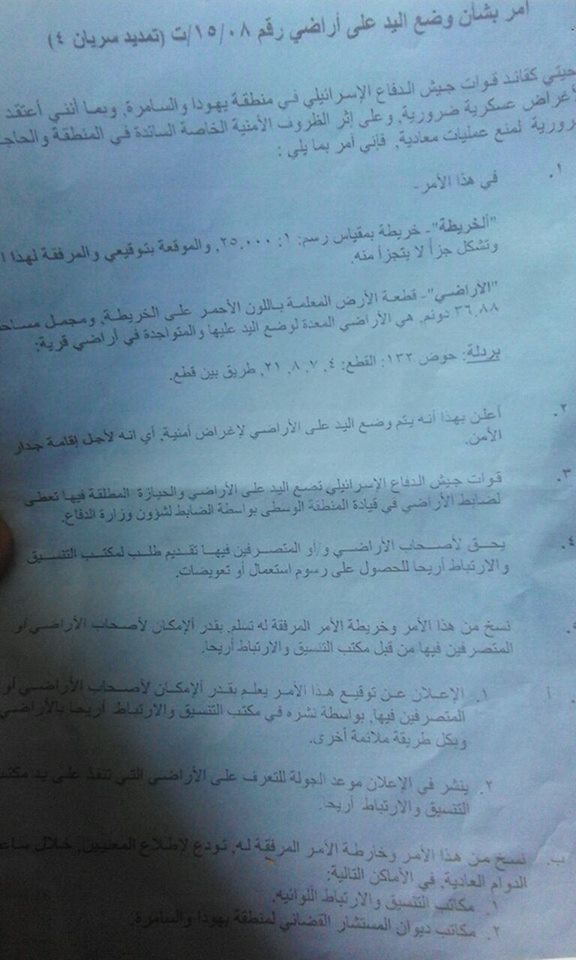 أمر بشأن وضع اليد على أراضي رقم ١٥/٠٨/ت (تمديد سريان ٤)
كقائد قوات جيش الدفاع الإسرائيلي في منطقة يهودا والسامرة, وبما أنني أعتقد
عسكرية ضرورية, وعلى إثر الظروف الأمنية الخاصة السائدة في المنطقة
لمنع عمليات معادية, فإني أمر بما يلي:
١. في هذا الأمر-
"الخريطة"- خريطة بمقياس رسم: ١: ٢٥,٠٠٠, والموقعة بتوقيعي والمرفقة لهذا
وتشكل جزأ لا يتجزأ منه.
"الأراضي"- قطعة الأرض المعلمة باللون الأحمر على الخريطة, ومجمل
٣٦,٨٨ دونم, هي الأراضي المعدة لوضع اليد عليها والمتواجدة في أراضي قرية:
بردلة: حوض ١٣٢: القطع: ٤, ٧, ٨, ٢١, طريق بين قطع.
٢. أعلن بهذا أنه يتم وضع اليد على الأراضي لإغراض أمنية, أي انه لأجل إقامة جدار
الأمن.
٣. قوات جيش الدفاع الإسرائيلي تضع اليد على الأراضي والحيازة المطلقة فيها تعطى
لضابط الأراضي في قيادة المنطقة الوسطى بواسطة الضابط لشؤون وزارة الدفاع.
٤. يحق لأصحاب الأراضي و/أو المتصرفين فيها تقديم طلب لمكتب التنسيق
والارتباط أريحا للحصول على رسوم استعمال أو تعويضات.
نسخ من هذا الأمر وخريطة الأمر المرفقة له تسلم, بقدر الإمكان لأصحاب الأراضي و/أو
المتصرفين فيها من قبل مكتب التنسيق والارتباط أريحا.
أ ١. الإعلان عن توقيع هذا الأمر يعلم بقدر الإمكان لأصحاب الأراضي أو
المتصرفين فيها, بواسطة نشره في مكتب التنسيق والارتباط أريحا
وبكل طريقة ملائمة أخرى.
٢. ينشر في الإعلان موعد الجولة للتعرف على الأراضي التي تنفذ على يد
التنسيق والارتباط أريحا.
ب. نسخ من هذا الأمر وخارطة الأمر المرفقة له, تودع لاطلاع المعنيين, خلال
الدوام العادية, في الأماكن التالية:
١. مكاتب التنسيق والارتباط اللوائيه.
٢. مكاتب ديوان المستشار القضائي لمنطقة يهودا والسامرة.